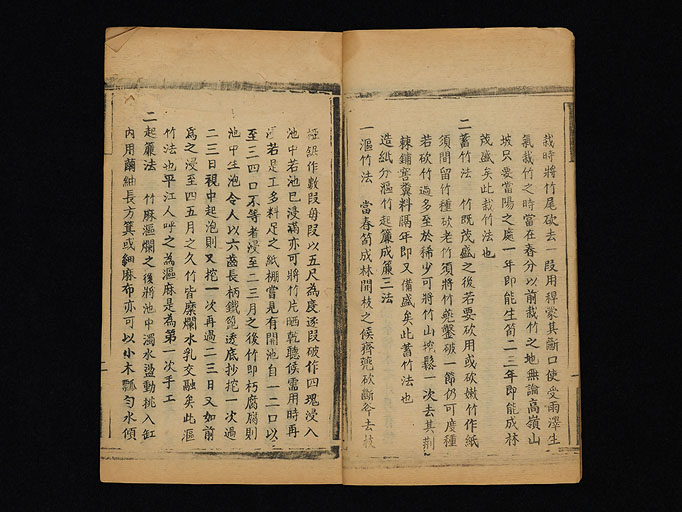 栽時將竹尾砍去一段用稈蒙其斷口使受雨澤生
氣栽竹之時當在春分以前栽竹之地無論高嶺山
坡只要當陽之處一年即能生筍二三年即能成林
茂盛矣此栽竹法也
二蓄竹法 竹既茂盛之後若要砍用或砍嫩竹作紙
須間留竹種砍老竹須將竹蔸鑿破一節仍可度種
若砍竹過多至於稀少可將竹山挖鬆一次去其荆
棘鋪窖糞料隔年即又備盛矣此蓄竹法也
造紙分漚竹起簾成簾三法
一漚竹法 當春筍成林開枝之候齊蔸砍斷斧去枝
極鋸作數段每段以五尺為度逐段破作四塊浸入
池中若池已浸滿亦可將竹片晒乾聽候需用時再
浸若是工多料足之紙棚嘗見有開池自一二口以
至三四口不等者浸至二三月之後竹即朽腐腐則
池中生泡令人以六齒長柄鐵鈀透底抄挖一次過
二三日視中起泡則又挖一次再過二三日又如前
為之浸至四五月之久竹皆糜爛水乳交融矣此漚
竹法也平江人呼之為漚麻是為第一次手工
二起簾法 竹麻漚爛之後將池中濁水盪動挑入缸
內用繭紬長方箕或細麻布亦可以小木瓢勻水傾